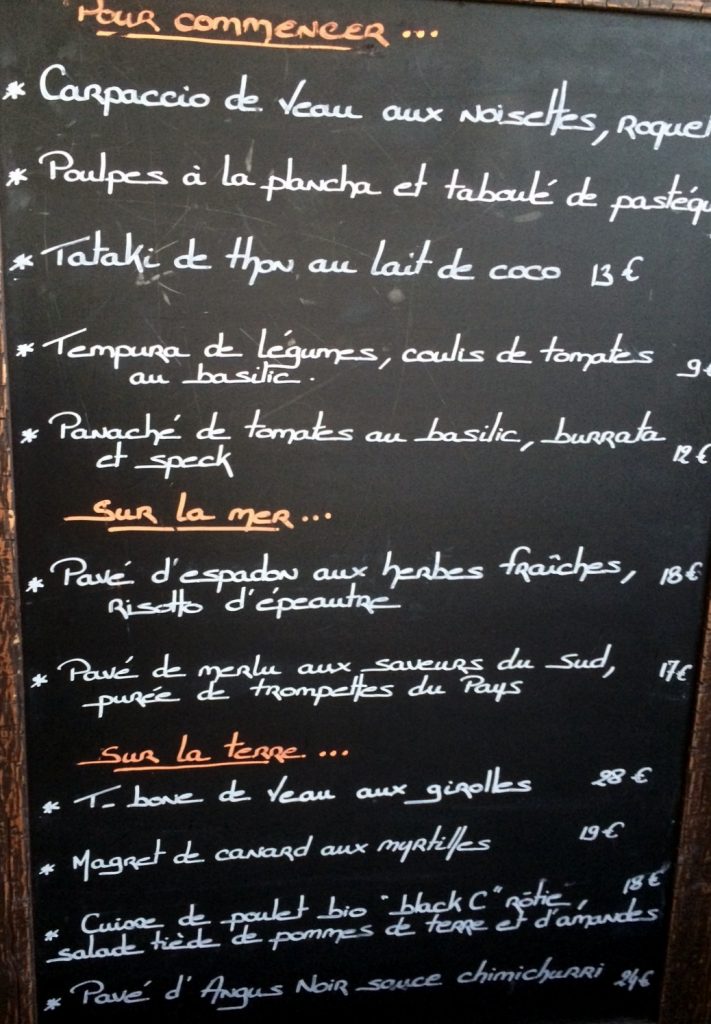 Pour commencer ...
* Carpaccio de veau aux noisettes, roquet
* Poulpes à la plancha et taboulé de pastéqu
* Tataki de thon au lait de coco 13 €
* Tempura de légumes, coulis de tomates 9€
au basilic.
* Panaché de tomates au basilic, burrata
et speck 12 €
Sur la mer ...
* Pavé d'espadon aux herbes fraîches, 18 €
Risotto d'épeautre
* Pavé de merlu aux saveurs du Sud, 17€
purée de trompettes du Pays
Sur la terre ...
* T-bone de veau aux girolles 28 €
* Magret de canard aux myrtilles 19 €
* Cuisse de poulet bio "black C" rôtie, 18 €
salade tiède de pommes de terre et d'amandes
* Pavé d'Angus Noir sauce chimichurri 24€